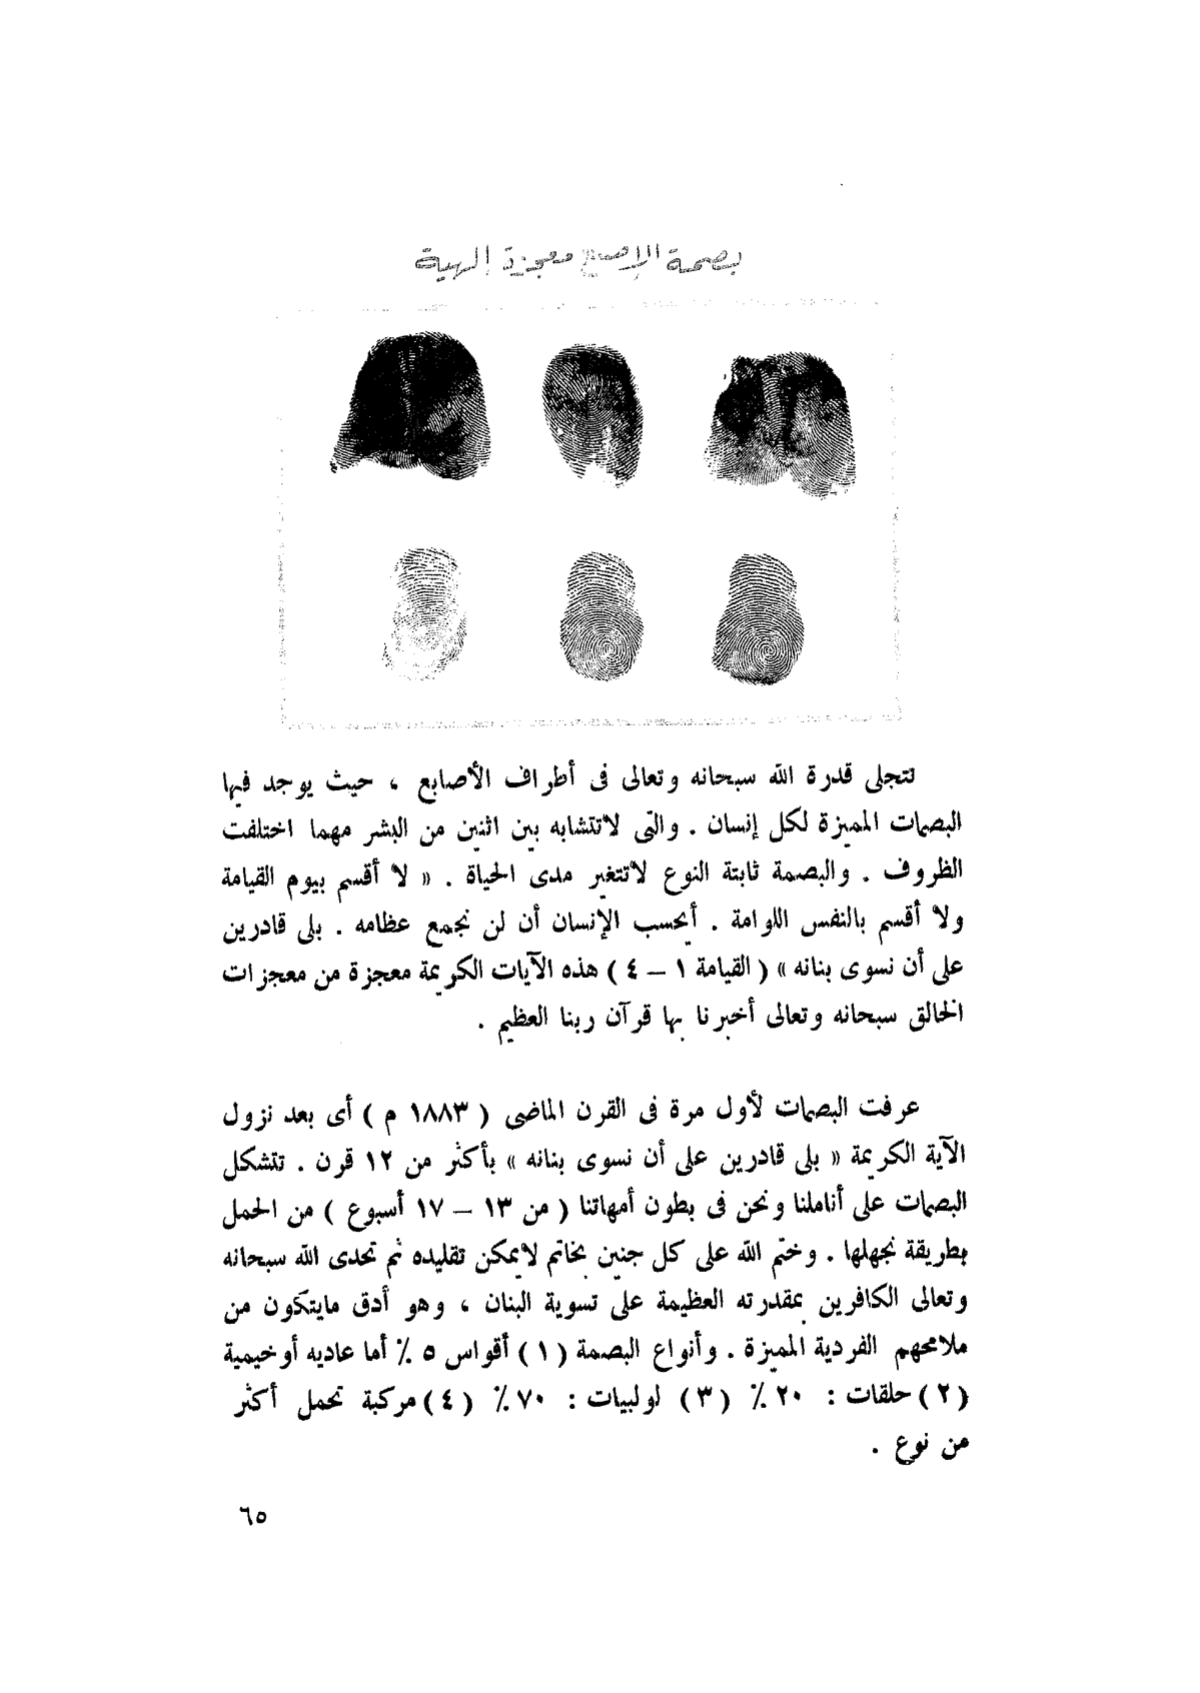 بصمة الإصبع معجزة إلهية
تتجلى قدرة الله سبحانه وتعالى فى أطراف الأصابع ، حيث يوجد فيها
البصمات المميزة لكل إنسان . والتى لاتتشابه بين اثنين من البشر مهما اختلفت
الظروف . والبصمة ثابتة النوع لاتتغير مدى الحياة . « لا أقسم بيوم القيامة
ولا أقسم بالنفس اللوامة . أيحسب الإنسان أن لن نجمع عظامه . بلى قادرين
على أن نسوى بنانه » ( القيامة ١ – ٤ ) هذه الآيات الكريمة معجزة من معجزات
الخالق سبحانه وتعالى أخبرنا بها قرآن ربنا العظيم .
عرفت البصمات لأول مرة فى القرن الماضى ( ١٨٨٣ م ) أى بعد نزول
الآية الكريمة « بلى قادرين على أن نسوى بنانه » بأكثر من ١٢ قرن . تتشكل
البصمات على أناملنا ونحن فى بطون أمهاتنا ( من ١٣ – ١٧ أسبوع ) من الحمل
بطريقة نجهلها . وختم الله على كل جنين بخاتم لايمكن تقليده ثم تحدى الله سبحانه
وتعالى الكافرين بمقدرته العظيمة على تسوية البنان ، وهو أدق مايتكون من
ملامحهم الفردية المميزة . وأنواع البصمة ( ١ ) أقواس ٥ ٪ أما عاديه أو خيمية
( ٢ ) حلقات : ٢٠ ٪ ( ٣ ) لولبيات : ٧٠ ٪ ( ٤ ) مركبة تحمل أكثر
من نوع .
٦٥